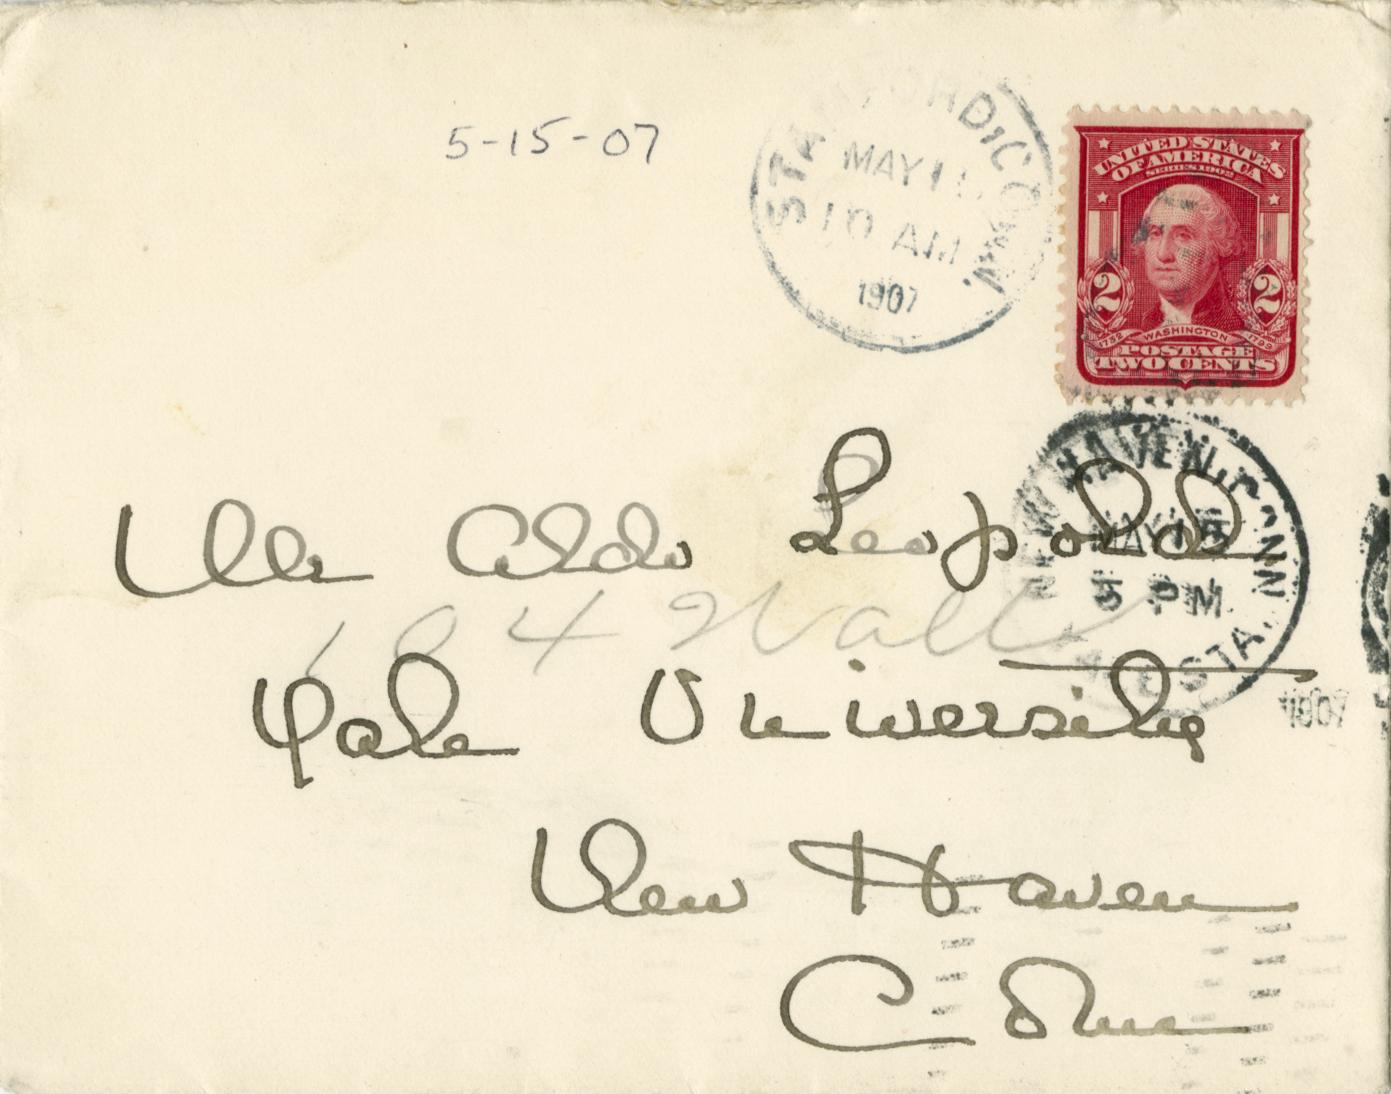 5-15-07
STAMFORD, CONN.
MAY 15
10 AM
1907
UNITED STATES
OF AMERICA
SERIES 1902
2 2
1732 WASHINGTON 1799
POSTAGE
TWO CENTS
NEW HAVEN, CONN.
MAY 15
5 PM
STA.
1907
Mr Aldo Leopold
104 Wall
Yale University
New Haven
Conn